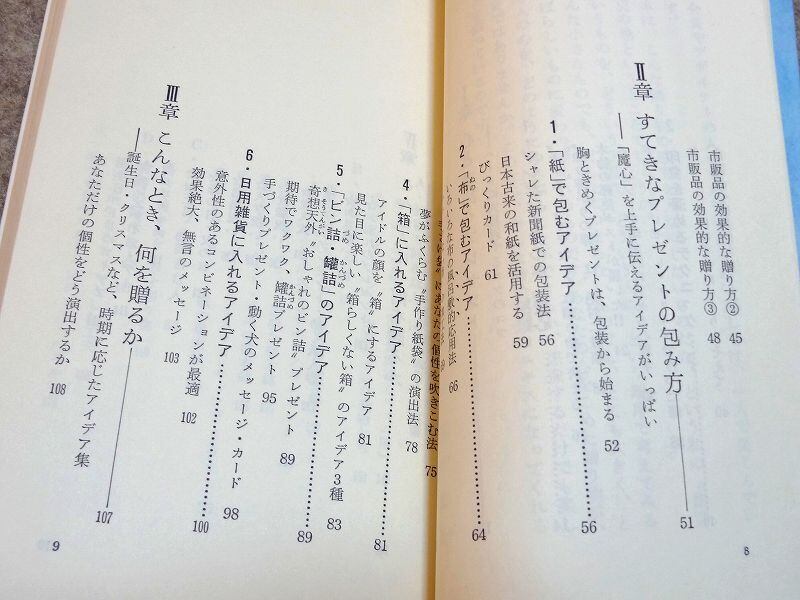 市販品の効果的な贈り方② 45
市販品の効果的な贈り方③ 48
Ⅱ章 すてきなプレゼントの包み方 51
―「魔心」を上手に伝えるアイデアがいっぱい
胸ときめくプレゼントは、包装から始まる 52
1・「紙」で包むアイデア 56
シャレた新聞紙での包装法 56
日本古来の和紙を活用する 59
びっくりカード 61
2・「布」で包むアイデア 64
ぬの
いろいろな布の風呂敷的応用法 66
にあなたの個性を吹きこむ法 75
夢がふくらむ〝手作り紙袋〟の演出法 78
4・「箱」に入れるアイデア 81
アイドルの顔を〝箱〟にするアイデア 81
見た目に楽しい〝箱らしくない箱〟のアイデア3種 83
5・「ビン詰・罐詰」のアイデア 89
づめ かんづめ
奇想天外〝おしゃれのビン詰〟プレゼント 89
きそうてんがい
期待でワクワク、罐詰プレゼント 95
かんづめ
手づくりプレゼント・動く犬のメッセージ・カード 98
6・日用雑貨に入れるアイデア 100
意外性のあるコンビネーションが最適 102
効果絶大、無言のメッセージ 103
Ⅲ章 こんなとき、何を贈るか 107
―誕生日・クリスマスなど、時期に応じたアイデア集
あなただけの個性をどう演出するか 108
8
9